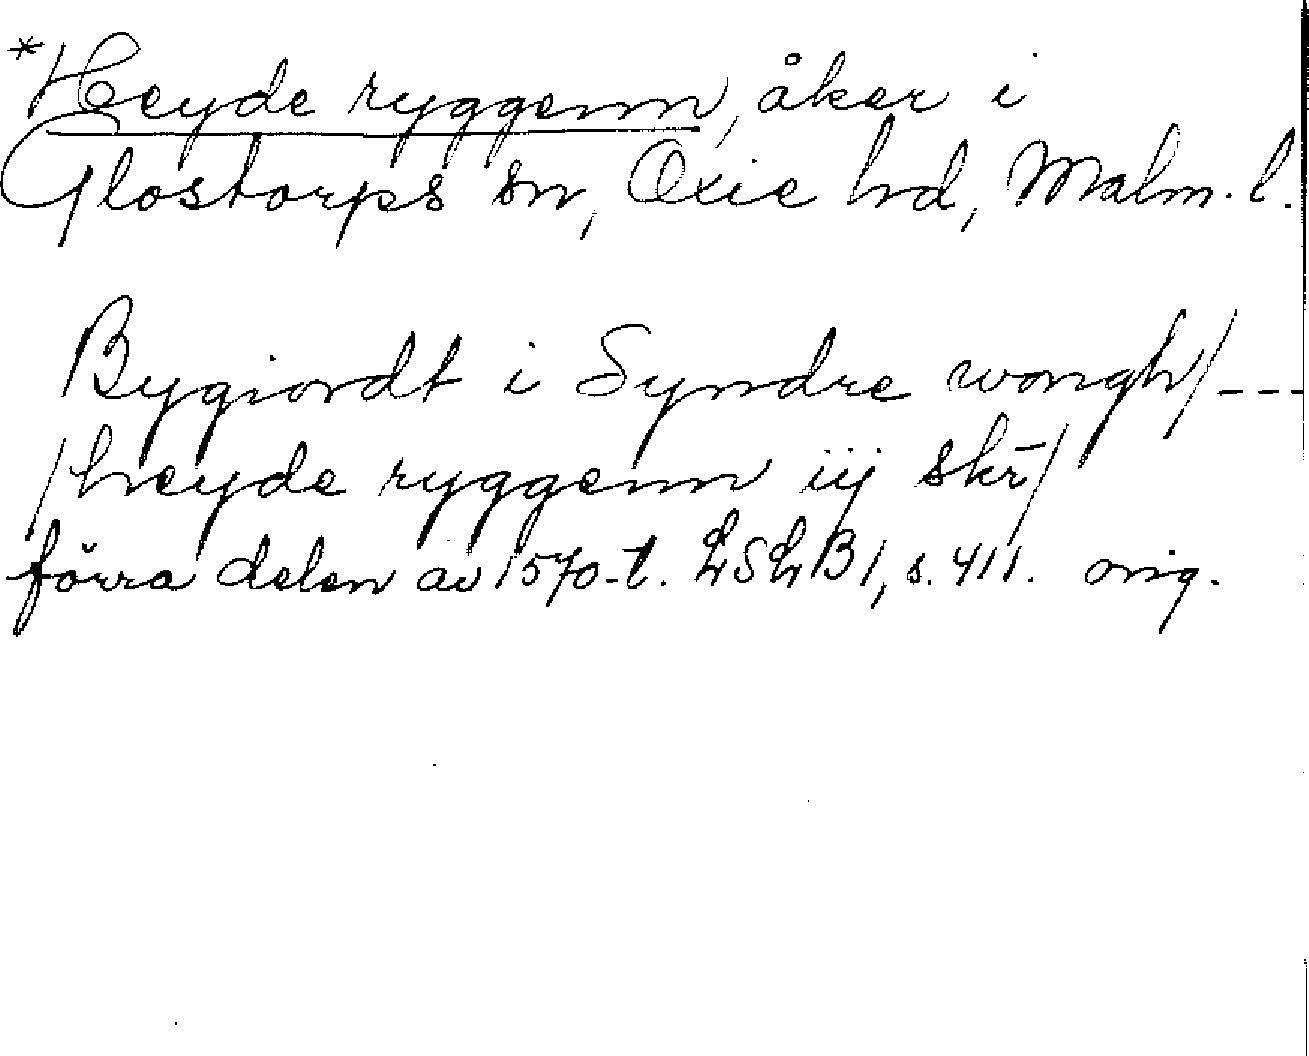 *Heyde ryggenn, åker i
Glostorps sn, Oxie hd, Malm. l.
Bygiordt i Syndre wongh/---
/heyde ryggenn iij skr̄/
förra delen av 1570-t. LSLB1, s. 411. orig.